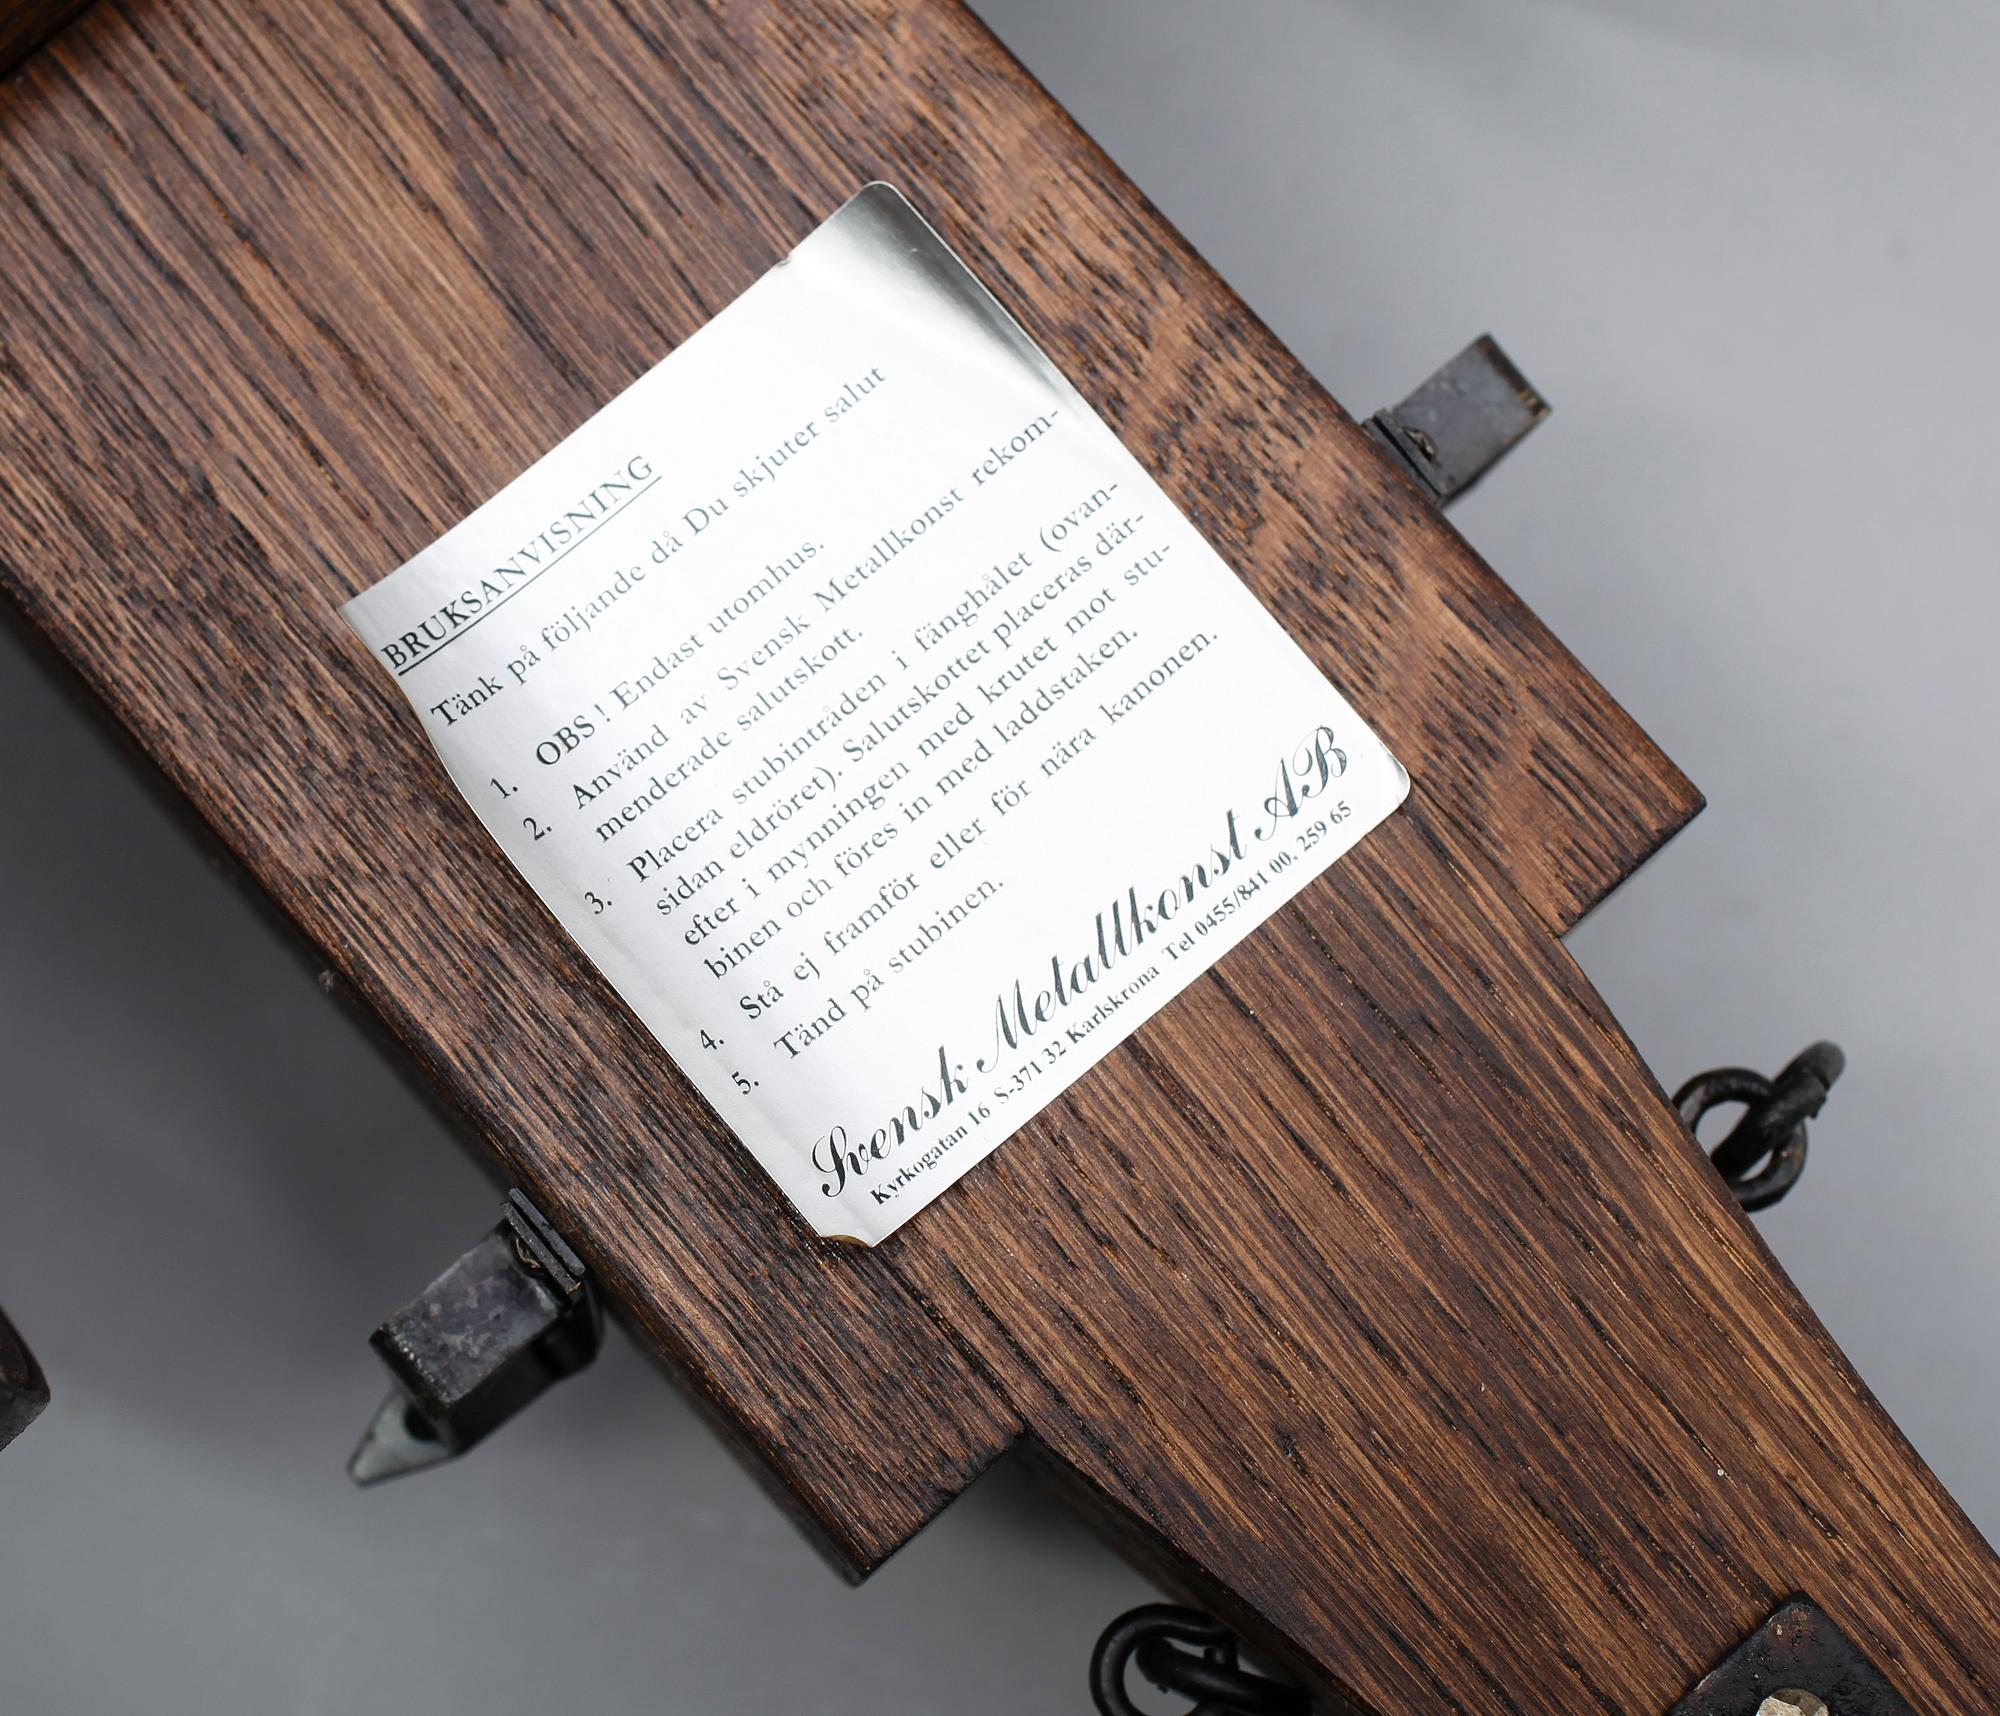 BRUKSANVISNING
Tänk på följande då Du skjuter salut
1. OBS! Endast utomhus.
2. Använd av Svensk Metallkonst rekom-
menderade salutskott.
3. Placera stubintråden i fänghålet (ovan-
sidan eldröret). Salutskottet placeras där-
efter i mynningen med krutet mot stu-
binen och föres in med laddstaken.
4. Stå ej framför eller för nära kanonen.
5. Tänd på stubinen.
Svensk Metallkonst AB
Kyrkogatan 16 S-371 32 Karlskrona Tel 0455/841 00, 259 65